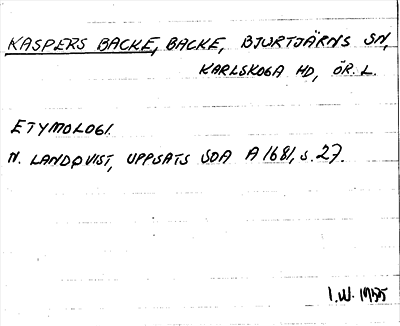 KASPERS BACKE, BACKE, BJURTJÄRNS SN,
KARLSKOGA HD, ÖR. L.
ETYMOLOGI.
N. LANDQVIST, UPPSATS SOA A 1681, s. 27.
I.W. 1975